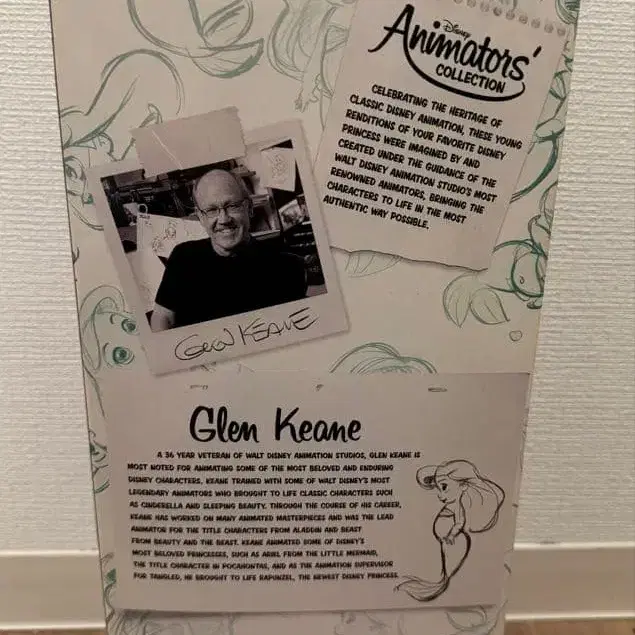 Disney
Animators'
COLLECTION
CELEBRATING THE HERITAGE OF
CLASSIC DISNEY ANIMATION, THESE YOUNG
RENDITIONS OF YOUR FAVORITE DISNEY
PRINCESS WERE IMAGINED BY AND
CREATED UNDER THE GUIDANCE OF THE
WALT DISNEY ANIMATION STUDIO'S MOST
RENOWNED ANIMATORS, BRINGING THE
CHARACTERS TO LIFE IN THE MOST
AUTHENTIC WAY POSSIBLE.
GLEN KEANE
Glen Keane
A 36 YEAR VETERAN OF WALT DISNEY ANIMATION STUDIOS, GLEN KEANE IS
MOST NOTED FOR ANIMATING SOME OF THE MOST BELOVED AND ENDURING
DISNEY CHARACTERS. KEANE TRAINED WITH SOME OF WALT DISNEY'S MOST
LEGENDARY ANIMATORS WHO BROUGHT TO LIFE CLASSIC CHARACTERS SUCH
AS CINDERELLA AND SLEEPING BEAUTY. THROUGH THE COURSE OF HIS CAREER,
KEANE HAS WORKED ON MANY ANIMATED MASTERPIECES AND WAS THE LEAD
ANIMATOR FOR THE TITLE CHARACTERS FROM ALADDIN AND BEAST
FROM BEAUTY AND THE BEAST. KEANE ANIMATED SOME OF DISNEY'S
MOST BELOVED PRINCESSES, SUCH AS ARIEL FROM THE LITTLE MERMAID,
THE TITLE CHARACTER IN POCAHONTAS, AND AS THE ANIMATION SUPERVISOR
FOR TANGLED, HE BROUGHT TO LIFE RAPUNZEL, THE NEWEST DISNEY PRINCESS.